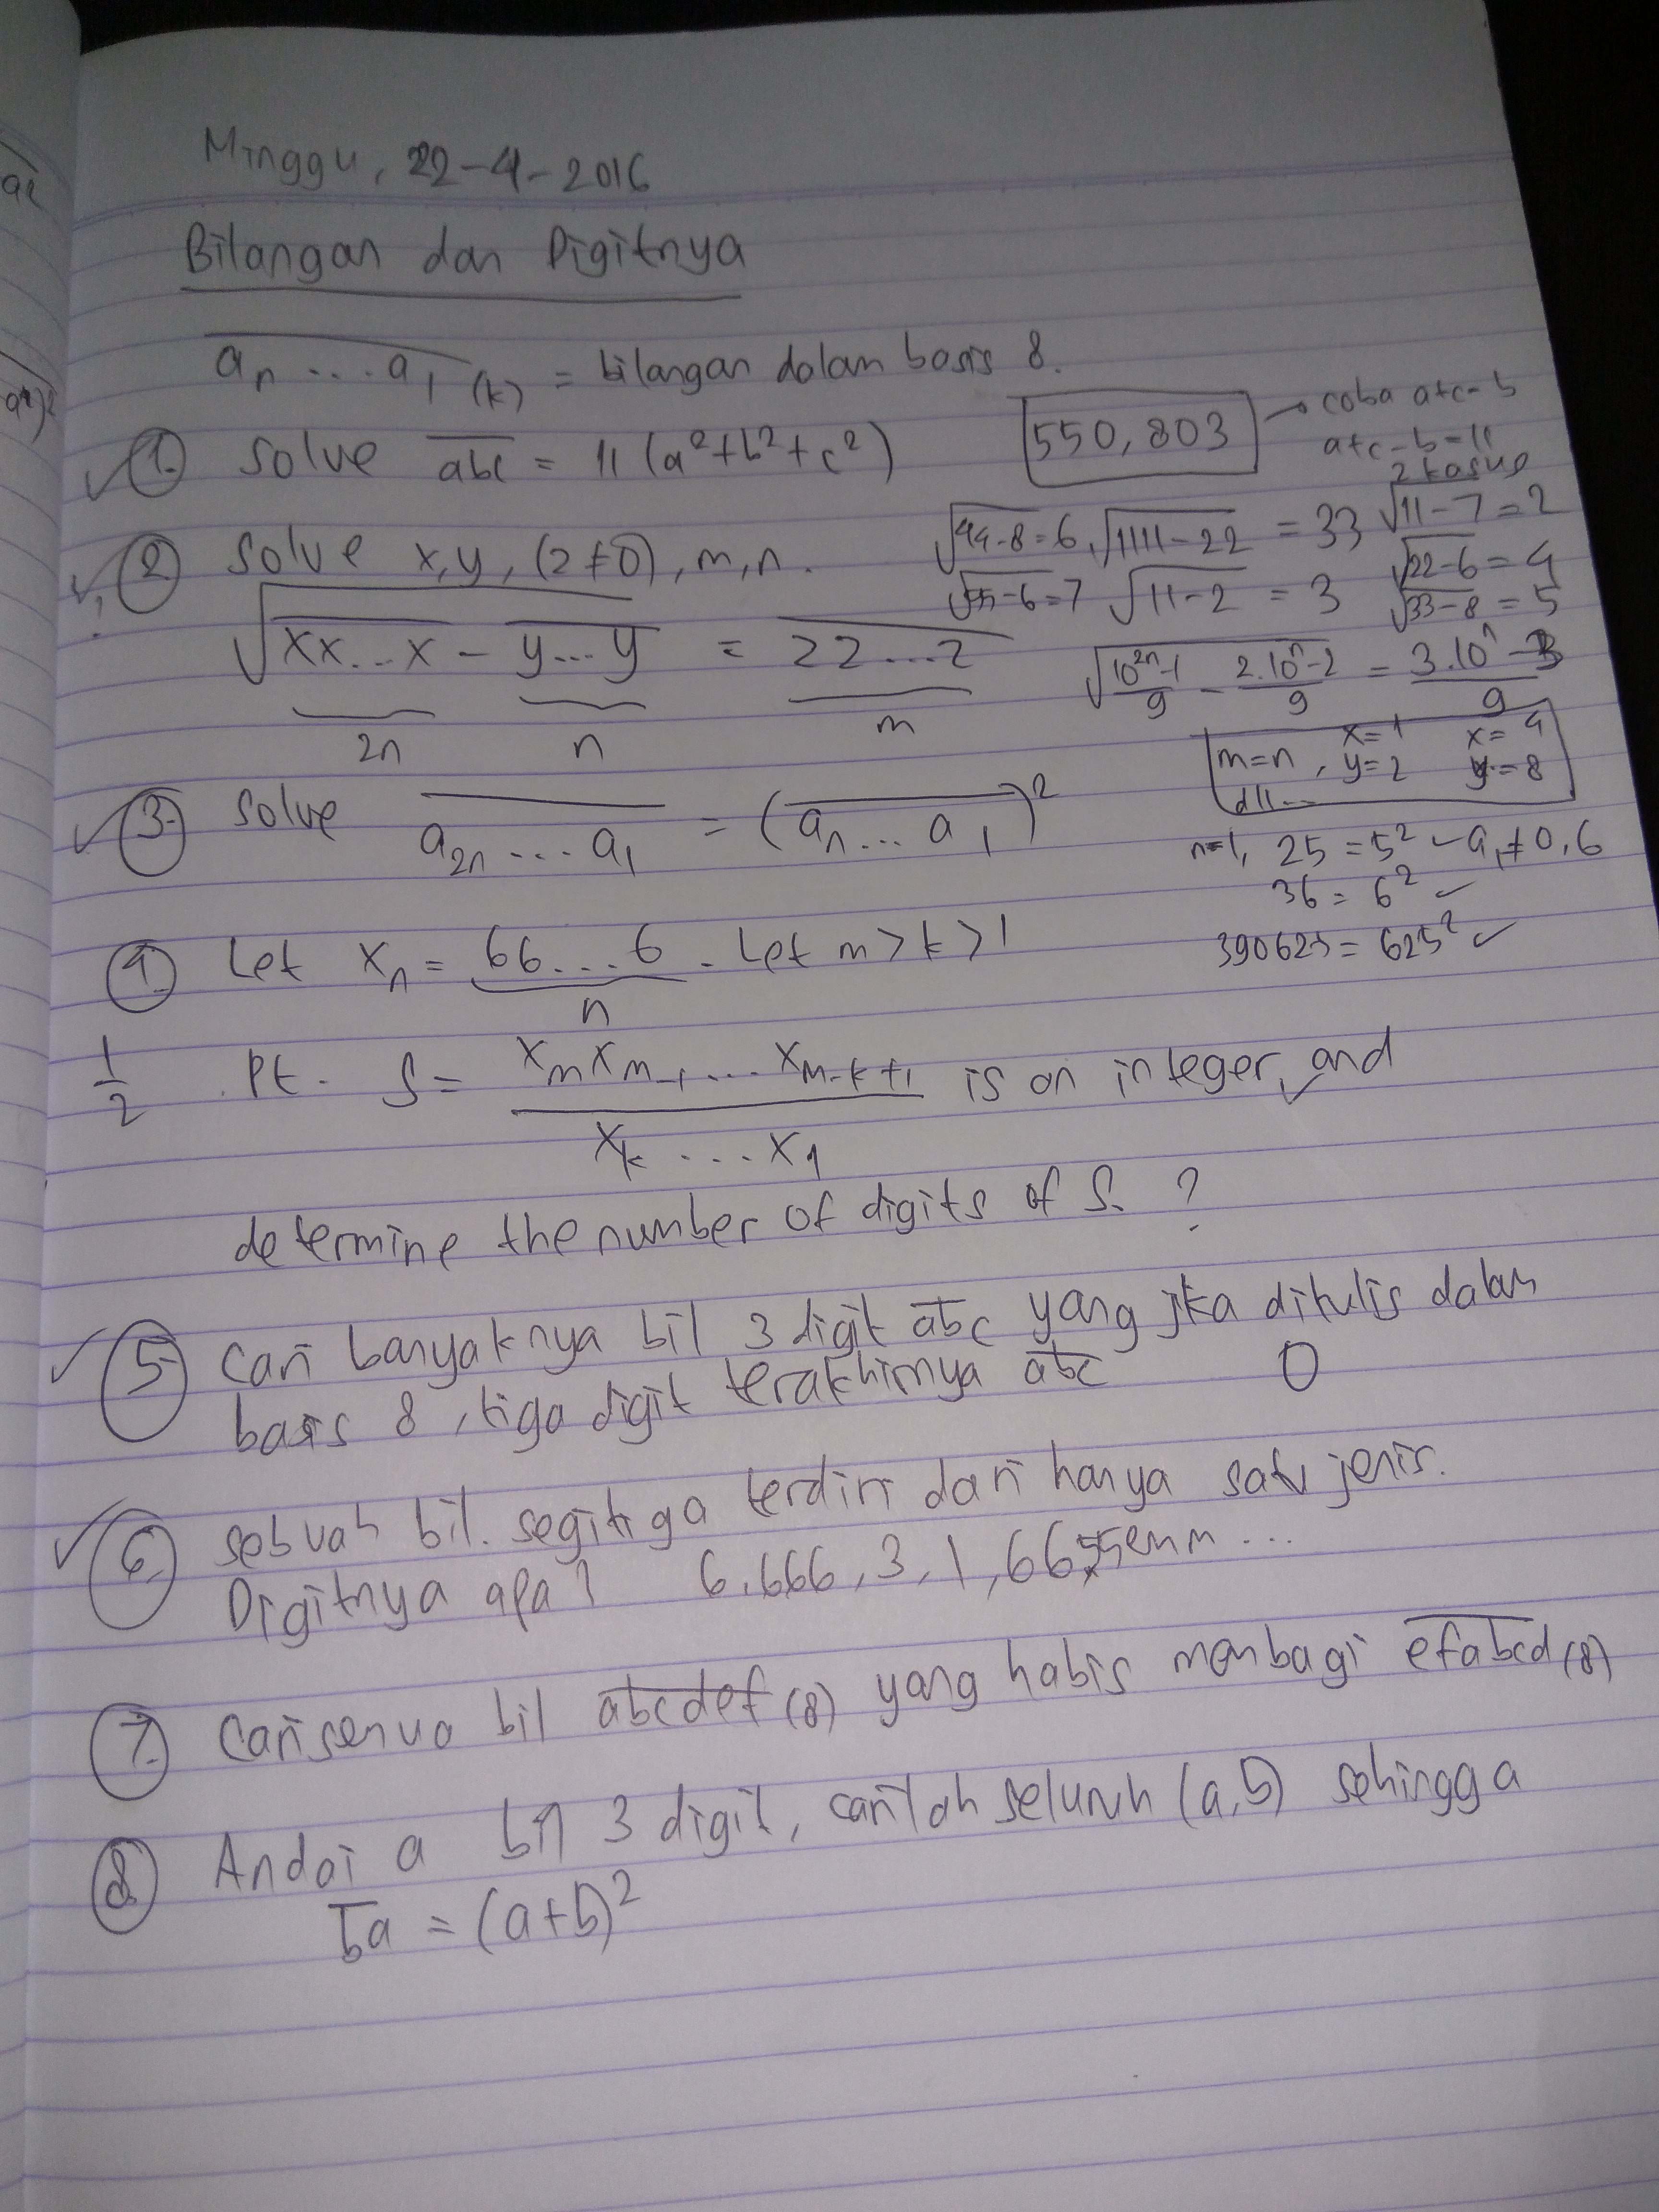 Minggu, 22-4-2016
Bilangan dan Digitnya
an ... a1 (k) = bilangan dalam basis 8.
1. Solve abc = 11 (a²+b²+c²)
550, 803 → coba a+c=b
a+c-b=11
2 kasus
2 Solve x,y, (z≠0), m,n.
√44-8=6, √1111-22 = 33 √11-7=2
√55-6=7 √11-2 = 3 √22-6=4
√33-8=5
√xx...x - y...y = zz...z
2n n m
√10²ⁿ-1/9 - 2.10ⁿ-2/9 = 3.10ⁿ-3/9
m=n, x=1 x=4
y=2 y=8
dll...
3. Solve a2n ... a1 = (an ... a1)²
n=1, 25=5² - a1≠0,6
36=6² ✓
390625=625² ✓
4. Let xn = 66...6. Let m>k>1
n
1/2 Pt. S = xm xm-1 ... xm-k+1 / xk ... x1 is an integer, and ✓
determine the number of digits of S. ?
5. Cari banyaknya bil 3 digit abc yang jika ditulis dalam
basis 8, tiga digit terakhirnya abc 0
6. Sebuah bil. segitiga terdiri dari hanya satu jenis.
Digitnya apa? 6, 666, 3, 1, 66, 55
7. Cari semua bil abcdef(8) yang habis membagi efabcd(8)
8. Andai a bil 3 digit, carilah seluruh (a,b) sehingga
ba = (a+b)²